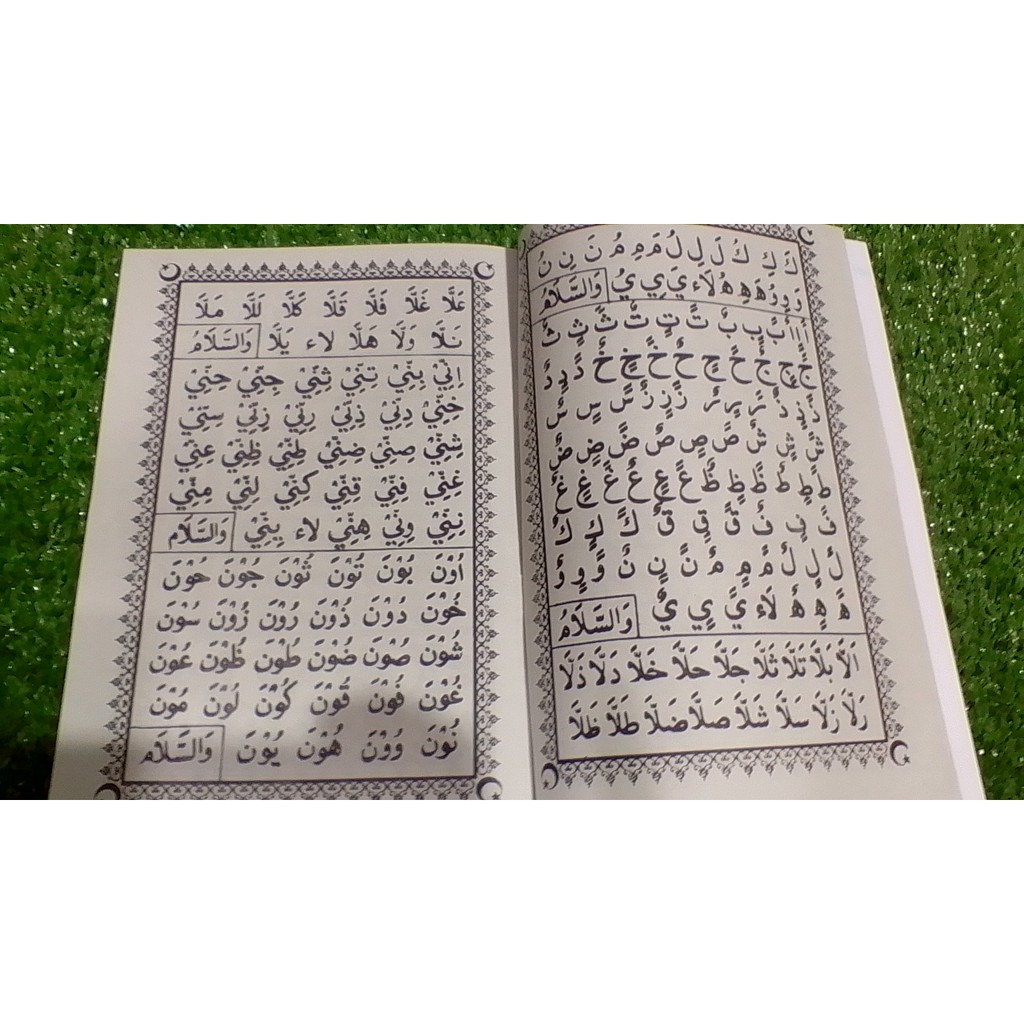 كَ كِ كُ لَ لِ لُ مَ مِ مُ نَ نِ نُ
وَ وِ وُ هَ هِ هُ لَاء يَ يِ يُ وَالسَّلَامُ
اً اٍ اٌ بً بٍ بٌ تً تٍ تٌ ثً ثٍ ثٌ
جً جٍ جٌ حً حٍ حٌ خً خٍ خٌ دً دٍ دٌ
ذً ذٍ ذٌ رً رٍ رٌ زً زٍ زٌ سً سٍ سٌ
شً شٍ شٌ صً صٍ صٌ ضً ضٍ ضٌ
طً طٍ طٌ ظً ظٍ ظٌ عً عٍ عٌ غً غٍ غٌ
فً فٍ فٌ قً قٍ قٌ كً كٍ كٌ
لً لٍ لٌ مً مٍ مٌ نً نٍ نٌ وً وٍ وٌ
هً هٍ هٌ لَاء يً يٍ يٌ وَالسَّلَامُ
الَّا بَلَّا تَلَّا ثَلَّا جَلَّا حَلَّا خَلَّا دَلَّا ذَلَّا
رَلَّا زَلَّا سَلَّا شَلَّا صَلَّا ضَلَّا طَلَّا ظَلَّا
عَلَّا غَلَّا فَلَّا قَلَّا كَلَّا لَلَّا مَلَّا
نَلَّا وَلَّا هَلَّا لاء يَلَّا وَالسَّلَامُ
اِنِّيْ بِنِّيْ تِنِّيْ ثِنِّيْ جِنِّيْ حِنِّيْ
خِنِّيْ دِنِّيْ ذِنِّيْ رِنِّيْ زِنِّيْ سِنِّيْ
شِنِّيْ صِنِّيْ ضِنِّيْ طِنِّيْ ظِنِّيْ عِنِّيْ
غِنِّيْ فِنِّيْ قِنِّيْ كِنِّيْ لِنِّيْ مِنِّيْ
نِنِّيْ وِنِّيْ هِنِّيْ لاء يِنِّيْ وَالسَّلَام
اُوْنَ بُوْنَ تُوْنَ ثُوْنَ جُوْنَ حُوْنَ
خُوْنَ دُوْنَ ذُوْنَ رُوْنَ زُوْنَ سُوْنَ
شُوْنَ صُوْنَ ضُوْنَ طُوْنَ ظُوْنَ عُوْنَ
غُوْنَ فُوْنَ قُوْنَ كُوْنَ لُوْنَ مُوْنَ
نُوْنَ وُوْنَ هُوْنَ يُوْنَ وَالسَّلَام